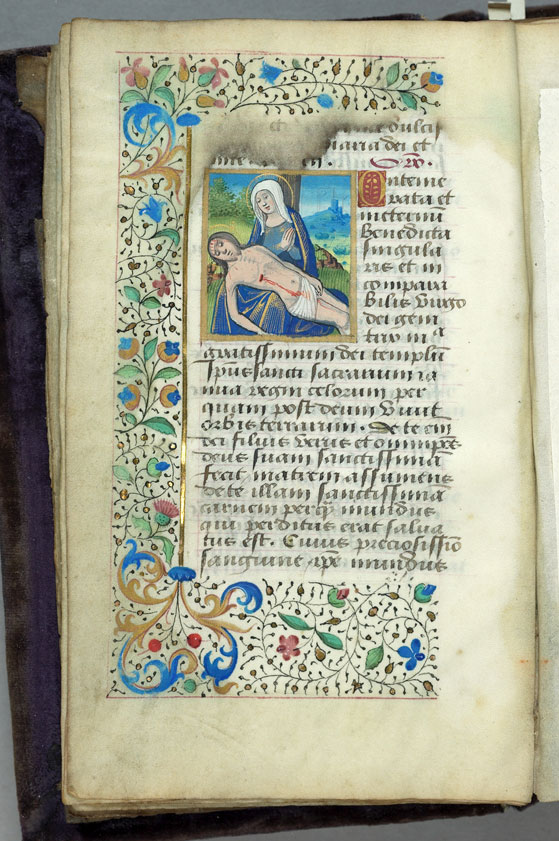 et dulcis
maria dei et
Or.
Inteme
rata et
ineternū
Benedicta
singula
ris et in
compara
bilis virgo
dei geni
trix mᵃ
gratissimum dei templū
spūs sancti sacrarium ia
nua regni celorum per
quam post deum vivit
orbis terrarum. De te eni
dei filius verus et omnipr̄s
deus suam sanctissimā
fecit matrem assumens
de te illam sanctissimā
carnem per q̄ mundus
qui perditus erat salua
tus est. Cuius preciosissīo
sanguine ipe mundus